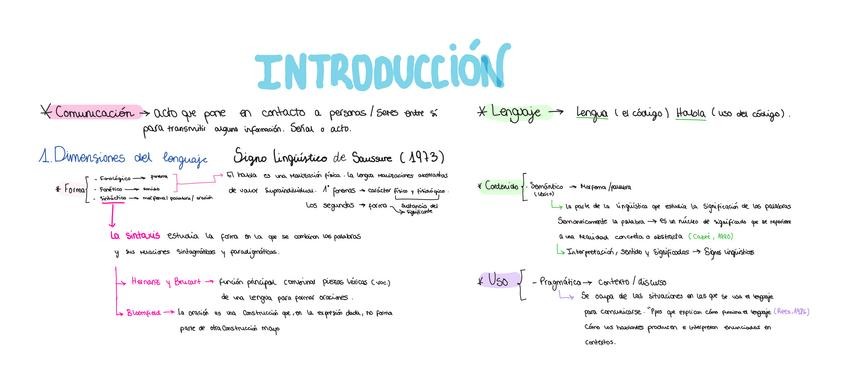 INTRODUCCIÓN
* Comunicación → acto que pone en contacto a personas/seres entre sí
para transmitir alguna información. Señal o acto.
1. Dimensiones del lenguaje
* Forma
- Fonológico → fonema
- Fonético → sonido
- Sintáctico → morfema/palabra/oración
Signo lingüístico de Saussure (1973)
El habla es una realización física. La lengua realizaciones abstractas
de valor supraindividual. 1º fonemas → carácter físico y fisiológico.
Los segundos → forma → sustancia del
significante
La sintaxis estudia la forma en la que se combinan las palabras
y sus relaciones sintagmáticas y paradigmáticas.
Hernanz y Brucart → función principal combinar piezas léxicas (voc.)
de una lengua para formar oraciones.
Bloomfield → La oración es una construcción que, en la expresión dada, no forma
parte de otra construcción mayor
* Lenguaje → Lengua (el código) Habla (uso del código).
* Contenido
- Semántico → Morfema/palabra
(léxico)
la parte de la lingüística que estudia la significación de las palabras
Semánticamente la palabra → es un núcleo de significado que se refiere
a una realidad concreta o abstracta (Cabré, 1990)
Interpretación, sentido y significados → Signo lingüístico
* Uso
- Pragmática → Contexto/discurso
Se ocupa de las situaciones en las que se usa el lenguaje
para comunicarse. "Ppos que explican cómo funciona el lenguaje
Cómo los hablantes producen e interpretan enunciados en
contextos.